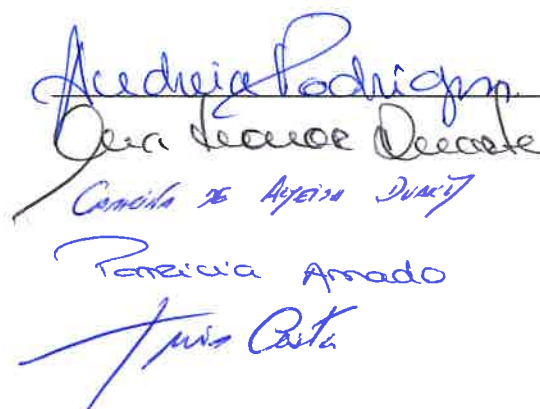 Andreia Rodrigues
Ana Leonor Duarte
de Almeida Duarte
Patricia Amado
Luis Costa